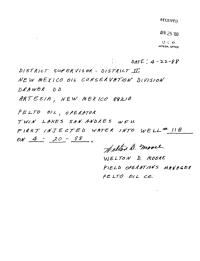 RECEIVED
APR 25 '88
O. C. D.
ARTESIA, OFFICE
DATE: 4-22-88
DISTRICT SUPERVISOR - DISTRICT II
NEW MEXICO OIL CONSERVATION DIVISION
DRAWER DD
ARTESIA, NEW MEXICO 88210
PELTO OIL, OPERATOR
TWIN LAKES SAN ANDRES WFU
FIRST INJECTED WATER INTO WELL # 118
ON 4 - 20 - 88.
Welton D. Moore
WELTON D. MOORE
FIELD OPERATIONS MANAGER
PELTO OIL CO.